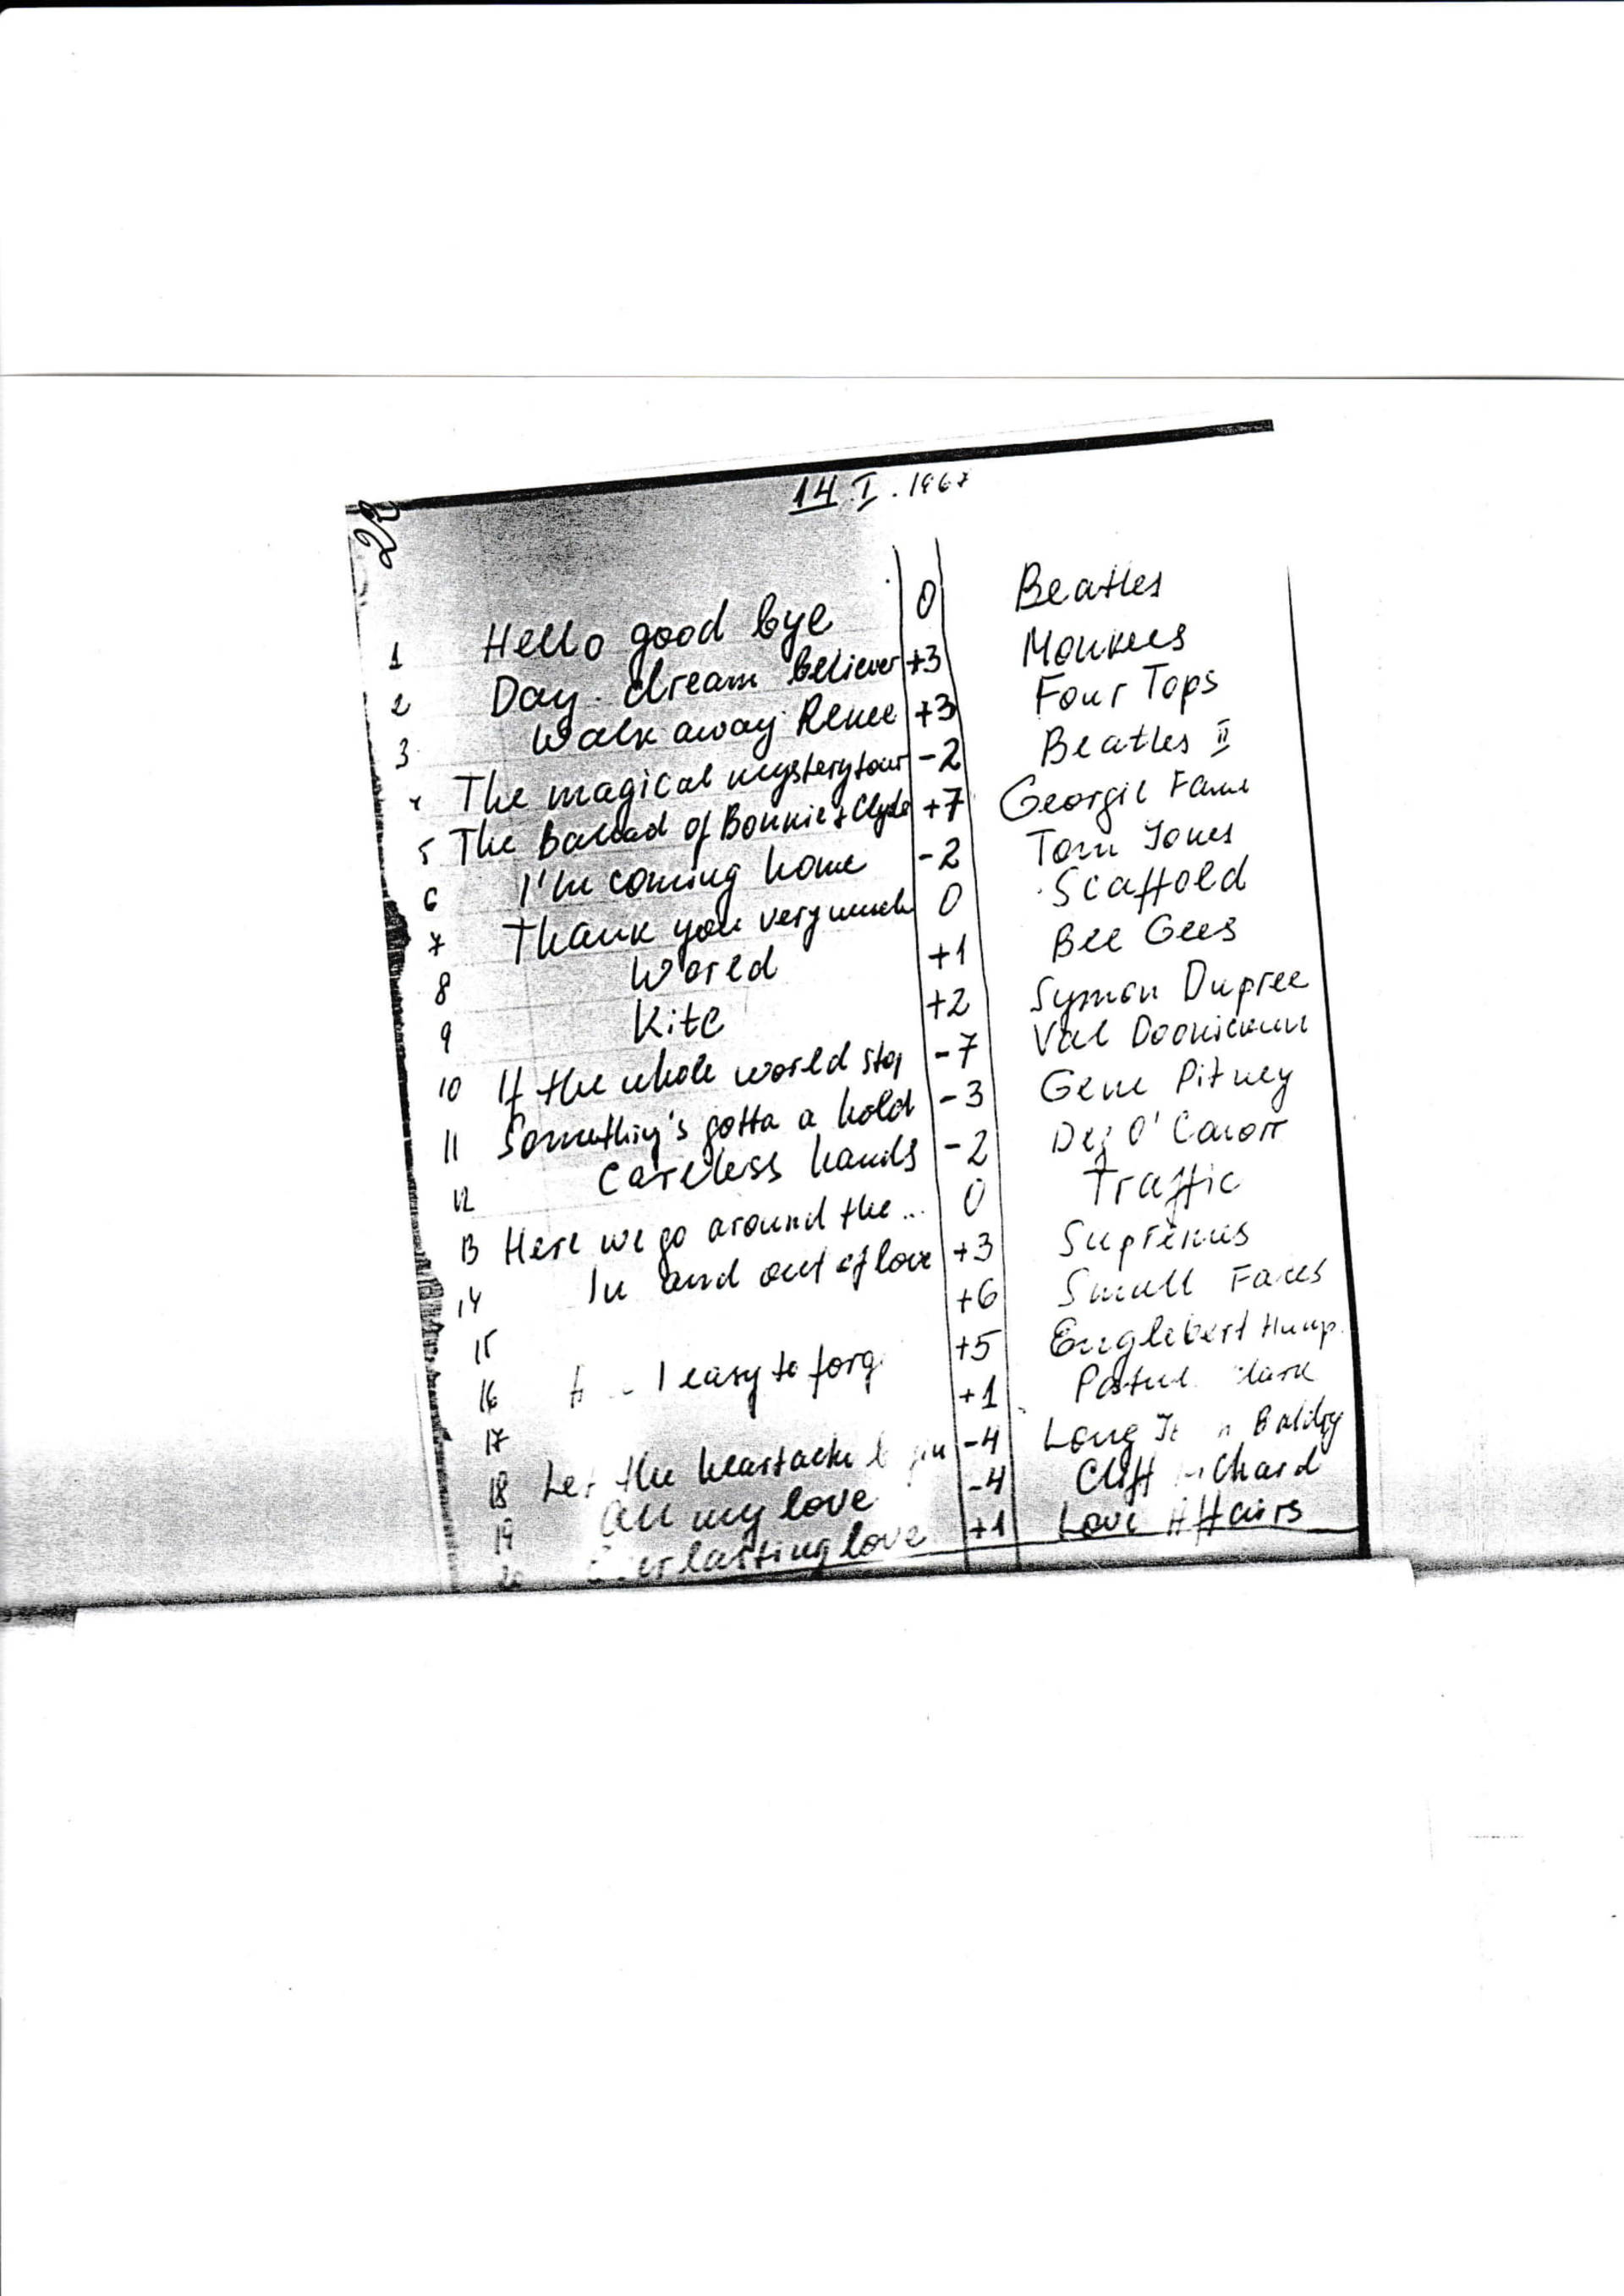 22
14.I.1967
1 Hello good bye 0 Beatles
2 Day dream believer +3 Monkees
3 Walk away Renee +3 Four Tops
4 The magical mystery tour -2 Beatles II
5 The Ballad of Bonnie & Clyde +7 Georgie Fame
6 I'm coming home -2 Tom Jones
7 Thank you very much 0 Scaffold
8 World +1 Bee Gees
9 Kite +2 Symon Dupree
10 If the whole world stop -7 Val Doonican
11 Something's gotta a hold -3 Gene Pitney
12 Careless hands -2 Des O'
13 Here we go around the ... 0 Traffic
14 In and out of love +3 Supremes
15 +6 Small Faces
16 I easy to +5 Englebert Hump.
17 +1
18 the heartache -4 Long Baldry
19 All my love -4 Cliff
20 love +1 Love Affairs